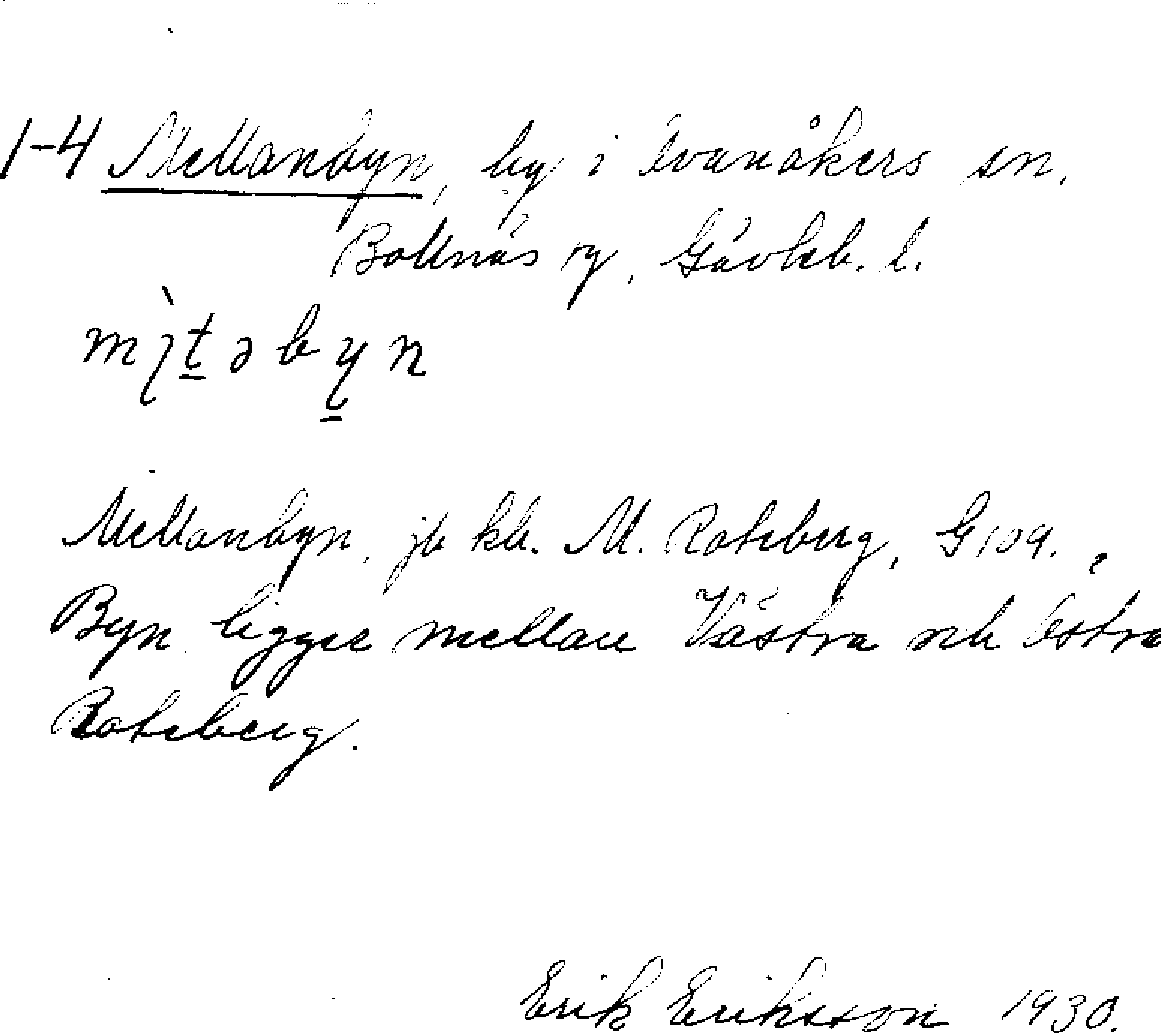 1-4 Mellanbyn, by i Svanåkers sn.
Bollnäs , Gävleb. l.
Mellanbyn, jb kb. M. Roteberg, G109.
Byn ligger mellan Västra och Östra
Roteberg.
Erik Eriksson 1930.